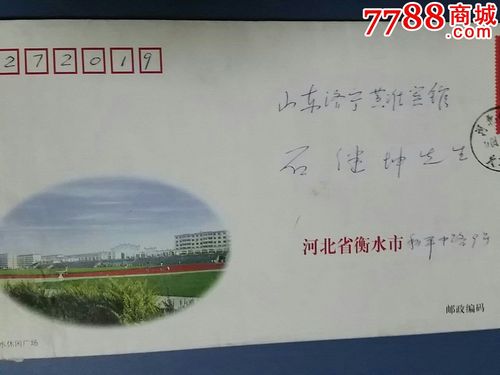 7788商城
272019
山东济宁黄淮宾馆
石继坤先生
河北省衡水市和平中路9号
邮政编码
水休闲广场